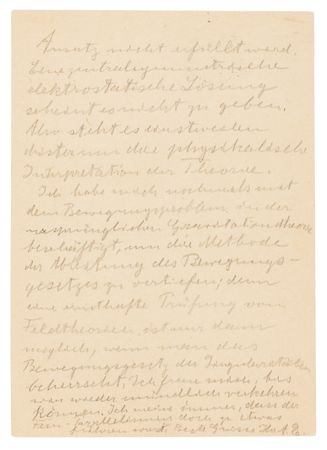 Ansatz nicht erfüllt wird.
Eine zentralsymmetrische
elektrostatische Lösung
scheint es nicht zu geben.
Also steht es einstweilen
düster um die physikalische
Interpretation der Theorie.
Ich habe mich nochmals mit
dem Bewegungsproblem in der
ursprünglichen Gravitationstheorie
beschäftigt, um die Methode
der Ableitung des Bewegungs-
gesetzes zu vertiefen; denn
eine ernsthafte Prüfung von
Feldtheorien ist nur dann
möglich, wenn man das
Bewegungsgesetz der Singularitäten
beherrscht. Ich freue mich, bis
wir wieder mündlich verkehren
können. Ich meine immer, dass der
doch zu etwas
führen wird. Beste Grüsse Ihr A. E.